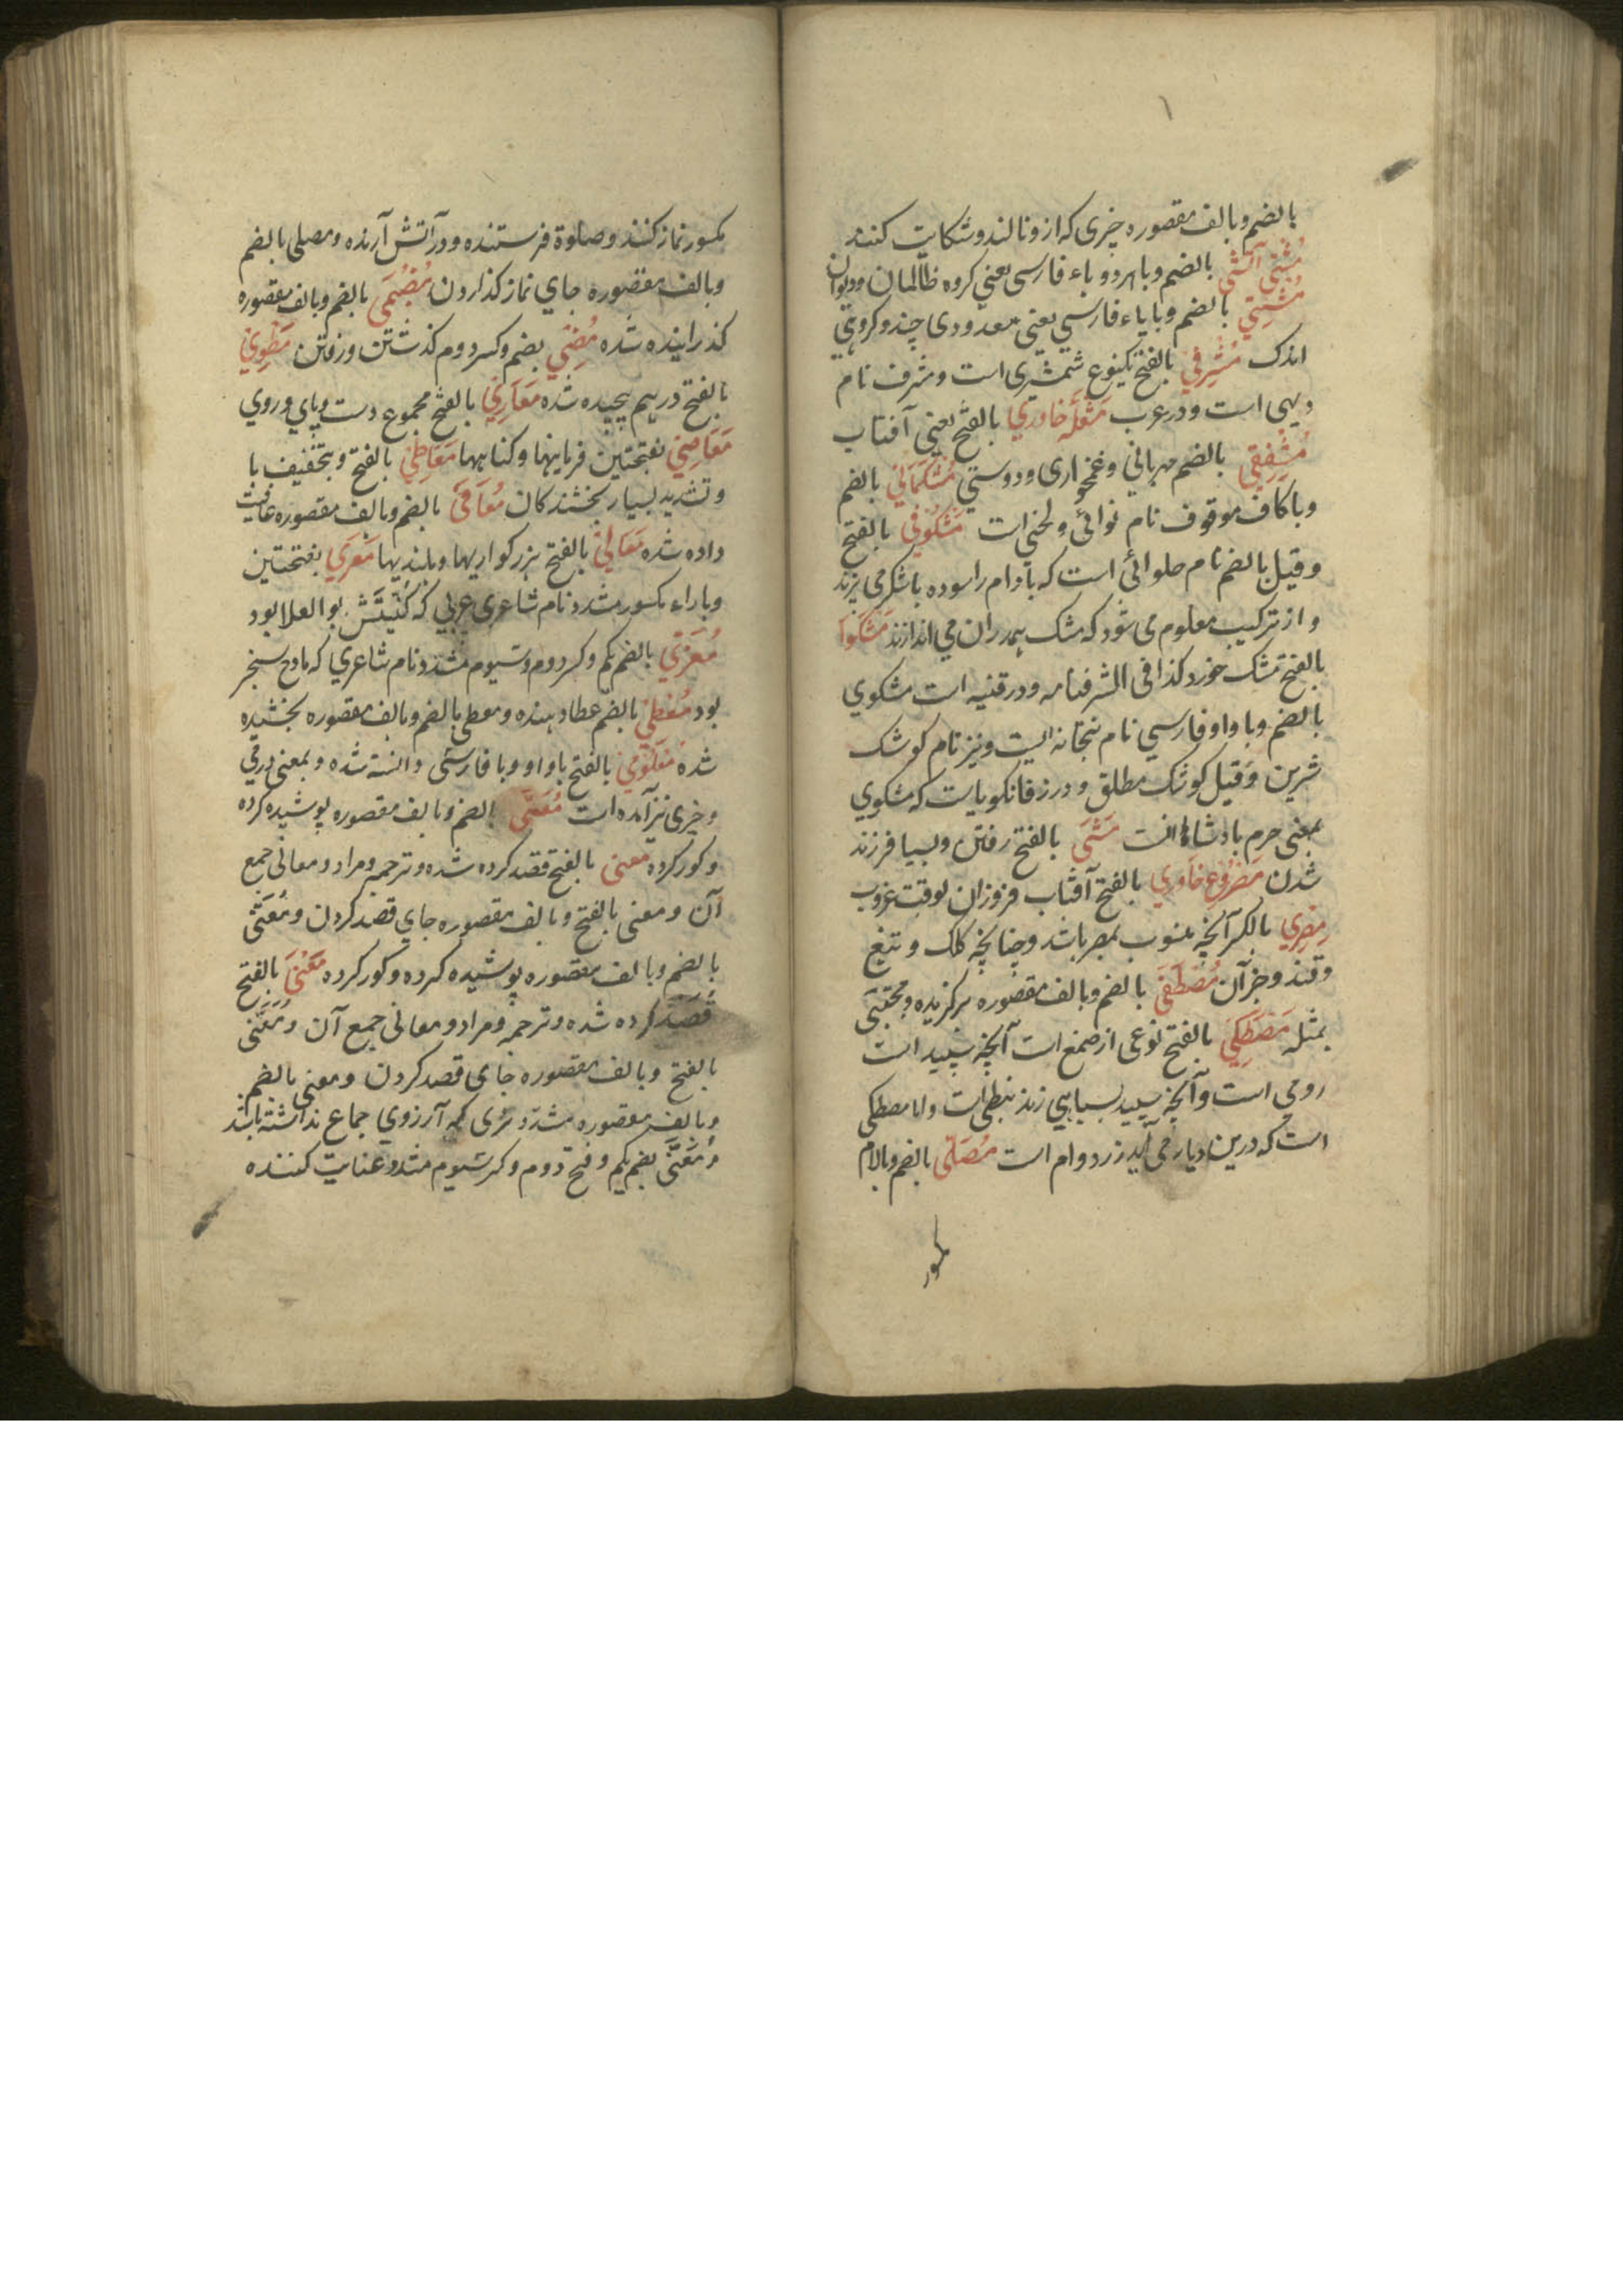 بالضم و بالف مقصوره چیزی که ازو نالند و شکایت کنند
مشتی آتشی بالضم و با هر دو یاء فارسی یعنی کروه ظالمان و دیوان
مشتی بالضم و با یاء فارسی یعنی معدودی چند و کروهی
اندک مشرفی بالفتح یکنوع شمشیری است و مشرف نام
دیهی است و در عرب مشعله خاوری بالفتح یعنی آفتاب
مشفقی بالضم مهربانی و غمخواری و دوستی مشکمالی بالضم
و با کاف موقوف نام نوائی و لحنی است مشکوفی بالفتح
و قیل بالضم نام حلوائی است که بادام را سوده با شکر می پزند
و از ترکیب معلوم می شود که مشک هم دران می اندازند مشکوا
بالفتح مشک خورد کذا فی الشرفنامه و در قنیه است مشکوی
بالضم و با واو فارسی نام بتخانه ایست و نیز نام کوشک
شیرین و قیل کوشک مطلق و در زفانکویاست که مشکوی
بمعنی حرم بادشاهانست مشی بالفتح رفتن و بسیا فرزند
شدن مصروع خاوری بالفتح آفتاب فروزان بوقت غروب
مصری بالکسر آنچه منسوب بمصر باشد و چنانچه کلک و تیغ
و قند و جز آن مصطفی بالضم و بالف مقصوره برکزیده و مجتبی
بمثله مصطکی بالفتح نوعی از صمغ است آنچه سپید است
رومی است و آنچه سپید بسیاهی زند نبطی است و اما مصطکی
است که درین دیار می آید زرد وام است مصلی بالضم و بالام
مکسور نماز کننده و صلوة فرستنده و در آتش آرنده و مصلی بالضم
و بالف مقصوره جای نماز کذاردن مضمی بالضم و بالف مقصوره
کذرانیده شده مضی بضم و کسر دوم کذشتن و رفتن مطوی
بالفتح در هم پیچیده شده معاری بالفتح مجموع دست و پای و روی
معاصی بفتحتین فرمانیها و کناهها معاطی بالفتح و بتخفیف با
و تشدید بسیار بخشندکان معافی بالضم و بالف مقصوره عافیت
داده شده معالی بالفتح بزرکواریها و بلندیها معری بفتحتین
و با راء مکسور مشدد نام شاعری عربی که کنیتش بو العلا بود
معزی بالضم یکم و کسر دوم و سیوم مشدد نام شاعری که مادح سنجر
بود معطی بالضم عطا دهنده و معطی بالضم و بالف مقصوره بخشیده
شده معلومی بالفتح با واو و یا فارسی دانسته شده و بمعنی درمی
و چیزی نیز آمده است معمی بالضم و بالف مقصوره پوشیده کرده
و کور کرده معنی بالفتح قصد کرده شده و ترجمه و مراد و معانی جمع
آن و معنی بالفتح و بالف مقصوره جای قصد کردن و معنی
بالضم و بالف مقصوره پوشیده کرده و کور کرده معنی بالفتح
قصد کرده شده و ترجمه و مراد و معانی جمع آن و معنی
بالفتح و بالف مقصوره جای قصد کردن و معنی بالضم
و بالف مقصوره مشدد نری که آرزوی جماع نداشته باشد
و معنی بضم یکم و فتح دوم و کسر سیوم مشدد عنایت کننده